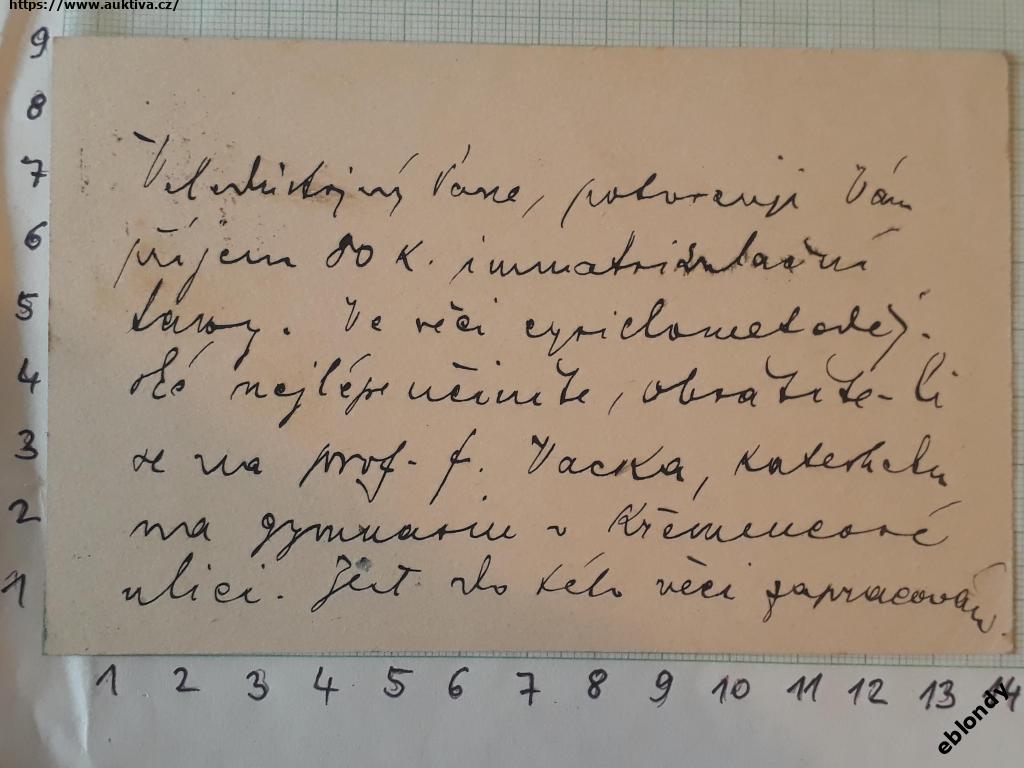 https://www.auktiva.cz/
Veledůstojný Pane, potvrzuji Vám
příjem 80 K. immatrikulační
taxy. Ve věci cyrilometoděj-
ské nejlépe učiníte, obrátíte-li
se na prof. f. Vacka, katechetu
na gymnasiu v Křemencové
ulici. Jest do této věci zapracován.
9
8
7
6
5
4
3
2
1
1 2 3 4 5 6 7 8 9 10 11 12 13 14
eblondy